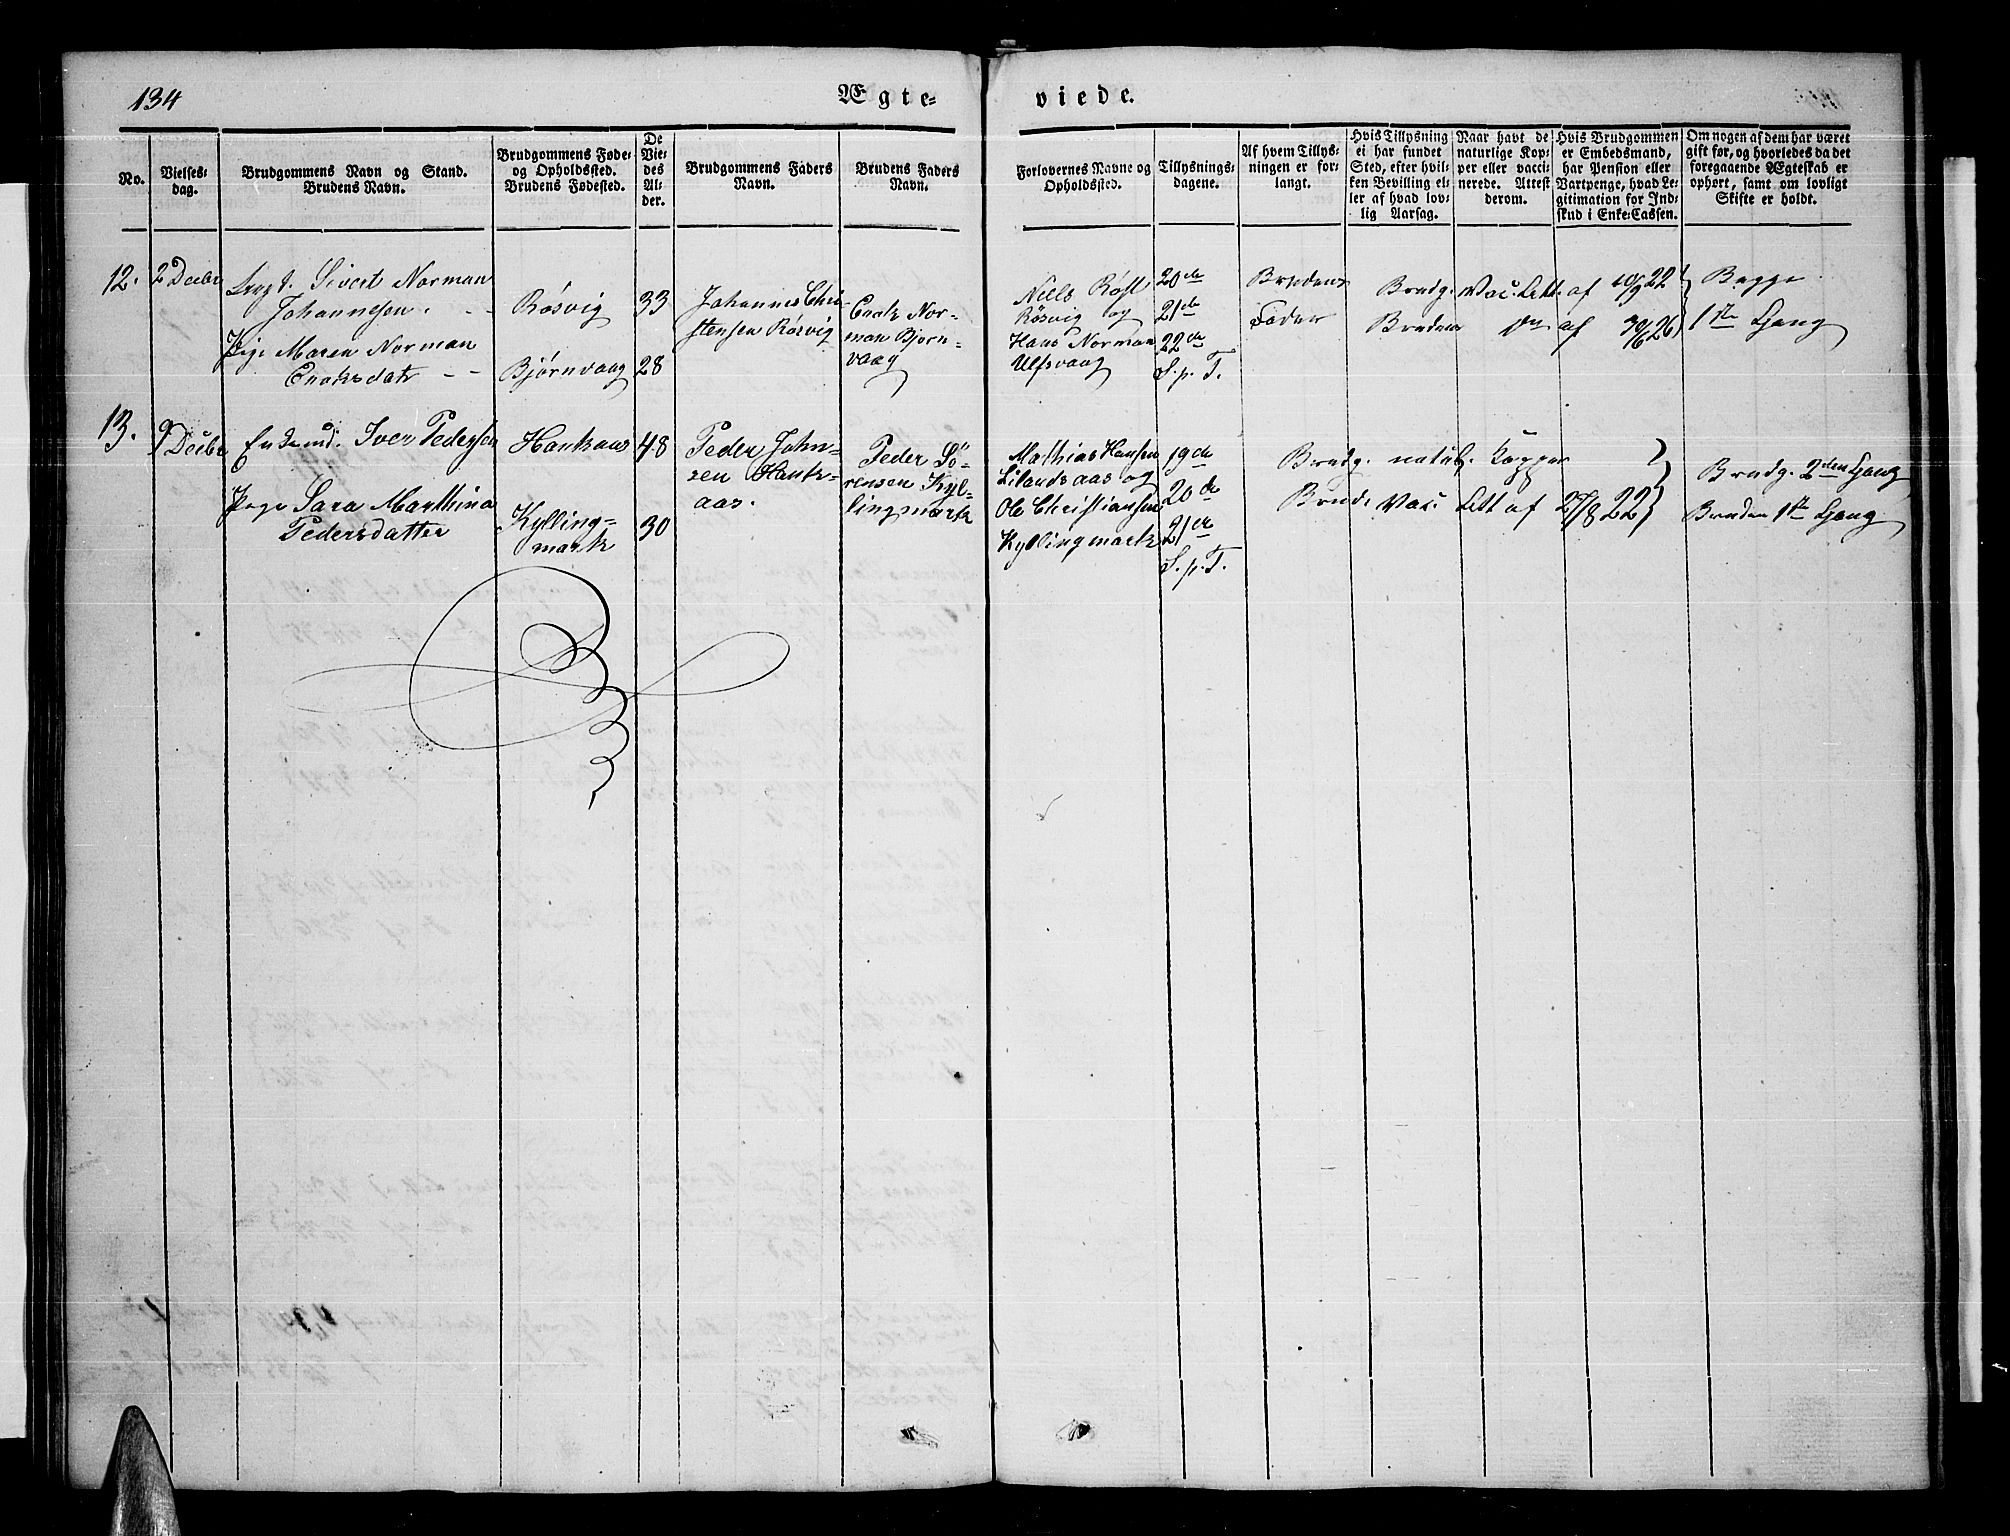 134
Ægte-
viede.
No.
Vielses-
dag.
Brudgommens Navn og Stand.
Brudens Navn.
Brudgommens Føde-
og Opholdssted.
Brudens Fødested.
De
Vie-
des
Al-
der.
Brudgommens Faders
Navn.
Brudens Faders
Navn.
Forlovernes Navne og
Opholdssted.
Tillysnings-
dagene.
Af hvem Tillys-
ningen er for-
langt.
Hvis Tillysning
ei har fundet
Sted, efter hvil-
ken Bevilling el-
ler af hvad lov-
lig Aarsag.
Naar havt de
naturlige Kop-
per eller vacci-
nerede. Attest
derom.
Hvis Brudgommen
er Embedsmand,
har Pension eller
Vartpenge, hvad Le-
gitimation for Ind-
skud i Enke-Cassen.
Om nogen af dem har været
gift før, og hvorledes da det
foregaaende Ægteskab er
ophørt, samt om lovligt
Skifte er holdt.
12.
2 Decbr
Ungk. Sivert Norman
Johannesen. - -
Pige Maren Norman
Enoksdatr - -
Røsvig
Bjørnvaag
33
28
Johannes Chri-
stensen Røsvig
Enok Nor-
man Bjørn-
vaag
Niels Røst
Røsvig og
Hans Norman
Ulfsvaag
20de
21de
22de
S. p. T.
Brudens
Fader
Brudg. Vac. Att. af 10/9 22
Bruden Do af 30/6 26
Begge
1ste Gang
13.
9 Decbr
Enkemd. Iver Pedersen
Pige Sara Marthina
Pedersdatter
Haukaas
Kylling-
mark
48
30
Peder John-
sen Hauk-
aas.
Peder Sö-
rensen Kyl-
lingmark
Mathias Hansen
Lilandsaas og
Ole Christiansen
Kyllingmark
19de
20de
21de
S. p. T.
Brudg. naturl. Kopper
Brud. Vac. Att af 27/8 22
Brudg. 2den Gang
Bruden 1ste Gang